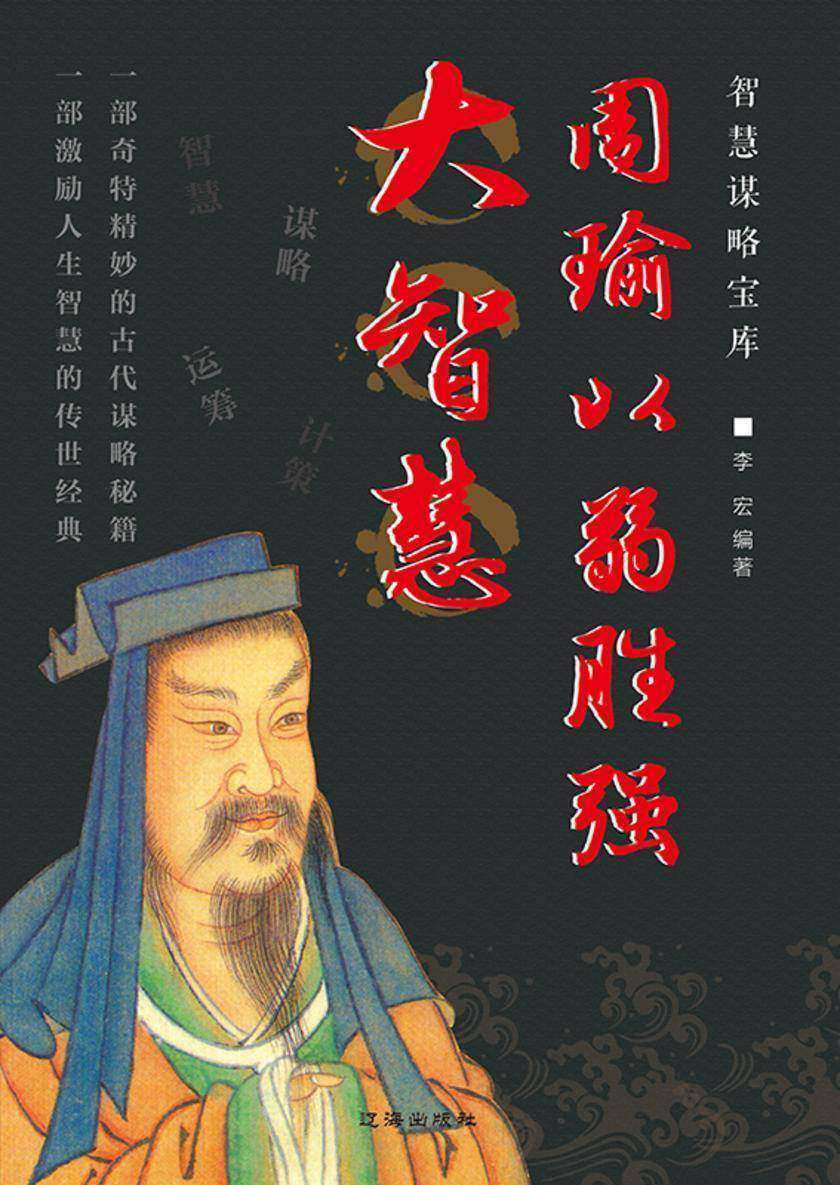 智慧谋略宝库
李宏编著
周瑜以弱胜强
大智慧
谋略
计策
智慧
运筹
一部奇特精妙的古代谋略秘籍
一部激励人生智慧的传世经典
辽海出版社